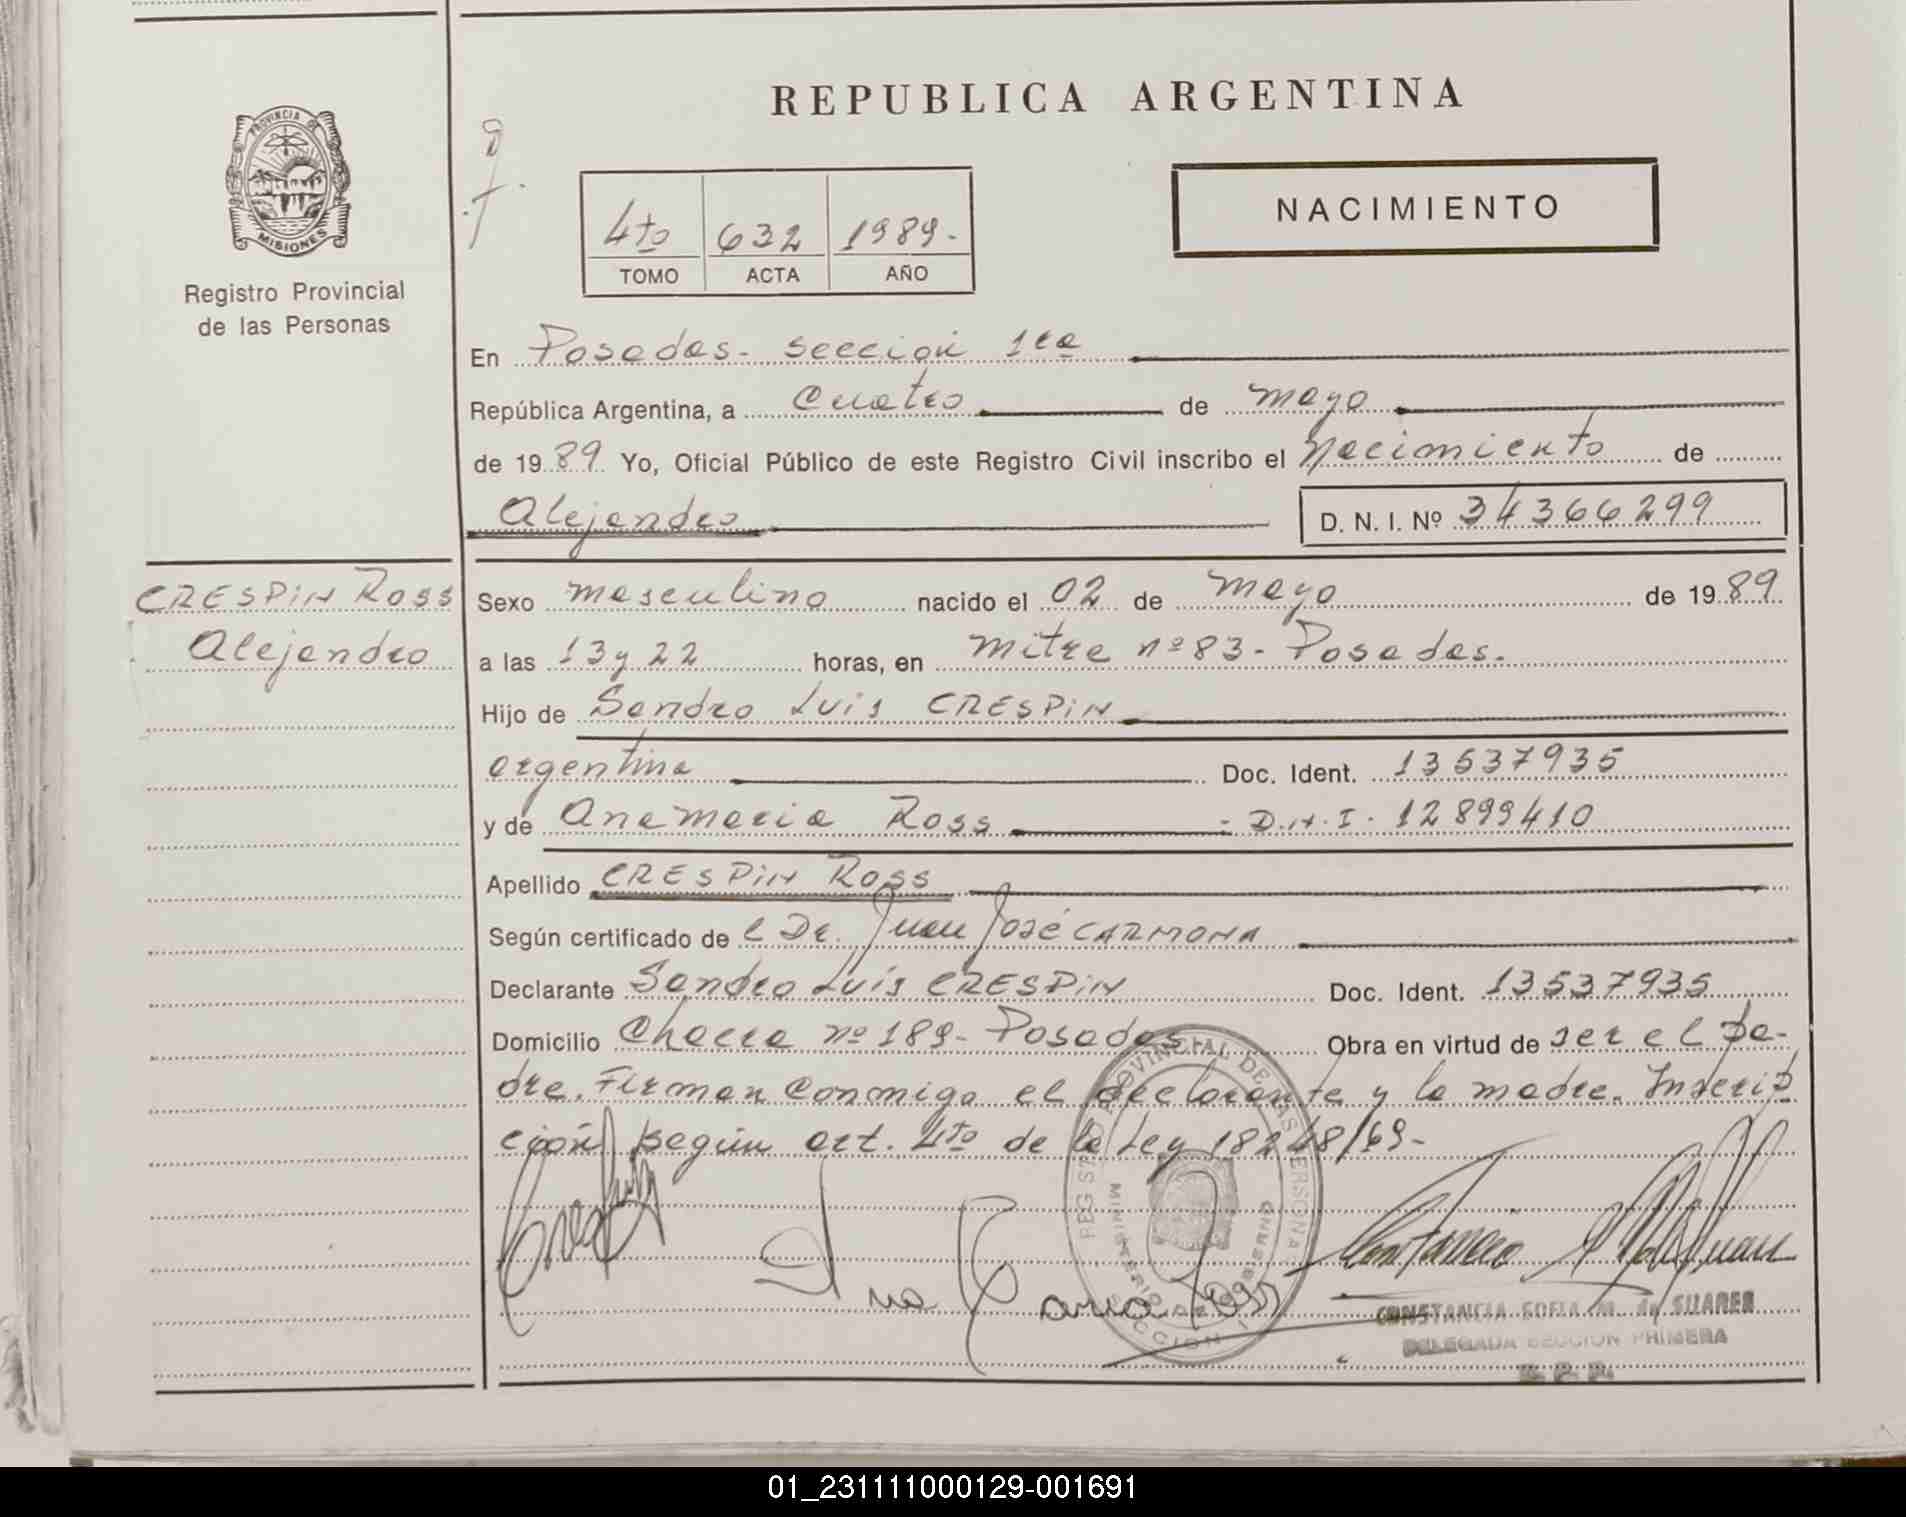 REPUBLICA ARGENTINA
PROVINCIA DE
MISIONES
Registro Provincial
de las Personas
4to 632 1989.-
TOMO ACTA AÑO
NACIMIENTO
En Posadas - sección 1ra
República Argentina, a cuatro de mayo
de 1989 Yo, Oficial Público de este Registro Civil inscribo el Nacimiento de
Alejandro D. N. I. Nº 34366299
CRESPIN ROSS
Alejandro
Sexo masculino nacido el 02 de mayo de 1989
a las 13 y 22 horas, en mitre nº 83 - Posadas.
Hijo de Sandro Luis CRESPIN
argentina Doc. Ident. 13537935
y de Ana Maria Ross - D.N.I. 12899410
Apellido CRESPIN ROSS
Según certificado de l Dr. Juan José CARMONA
Declarante Sandro Luis CRESPIN Doc. Ident. 13537935
Domicilio Chacra nº 189 - Posadas Obra en virtud de ser el pa-
dre. Firman conmigo el declarante y la madre. Inscrip
ción según art. 4to de la Ley 18248/69 -
REGISTRO PROVINCIAL DE LAS PERSONAS
MINISTERIO DE GOBIERNO
SECCION 1
Ana Maria Ross
CONSTANCIA SOFIA M. de SUAREZ
DELEGADA SECCION PRIMERA
R. P. P.
01_231111000129-001691